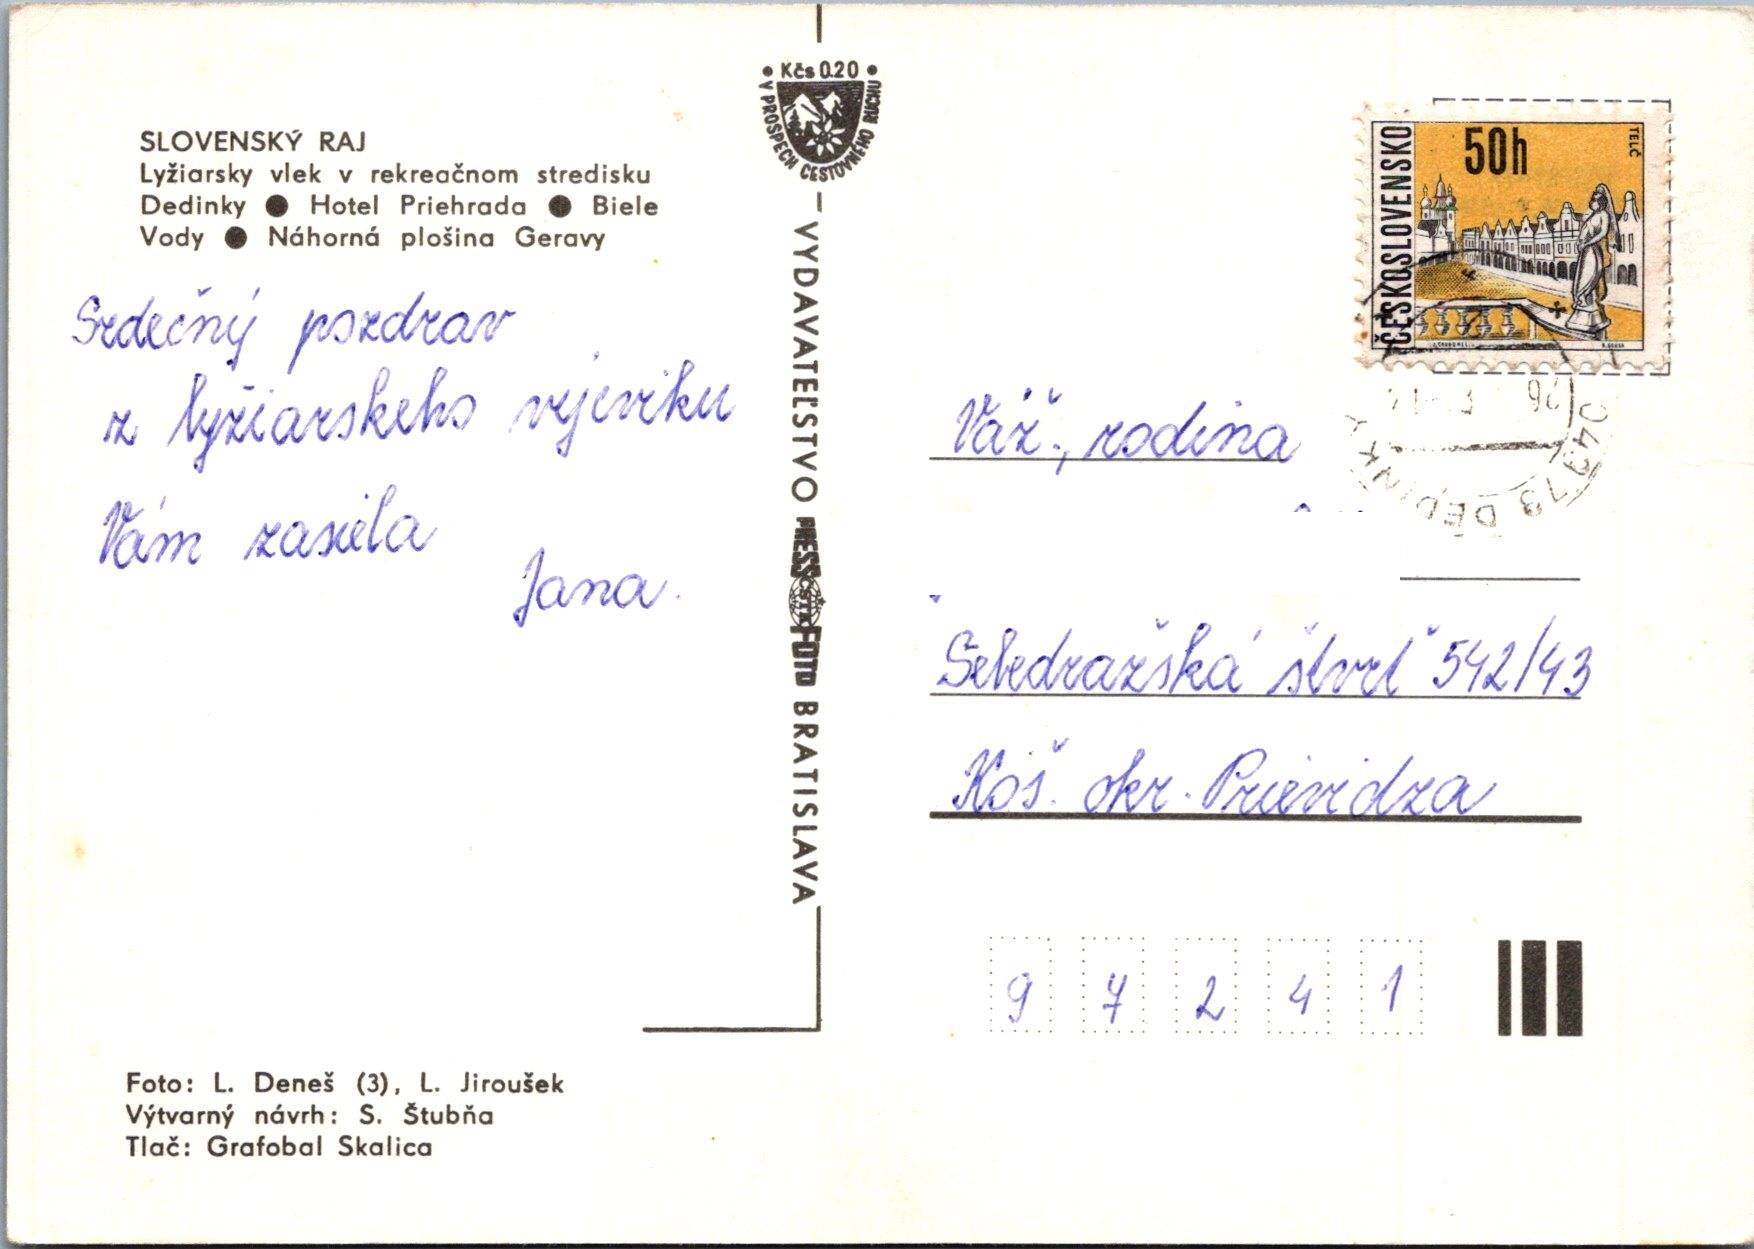 Kčs 0.20
V PROSPECH CESTOVNÉHO RUCHU
SLOVENSKÝ RAJ
Lyžiarsky vlek v rekreačnom stredisku
Dedinky ● Hotel Priehrada ● Biele
Vody ● Náhorná plošina Geravy
Srdečný pozdrav
z lyžiarskeho vejcviku
Vám zasiela
Jana.
VYDAVATEĽSTVO PRESSFOTO BRATISLAVA
ČSTK
ČESKOSLOVENSKO
50h
TELČ
049 73 DEDINKY
26
Váž., rodina
Sebedražská štvrť 542/43
Koš. okr. Prievidza
9 7 2 4 1
Foto: L. Deneš (3), L. Jiroušek
Výtvarný návrh: S. Štubňa
Tlač: Grafobal Skalica